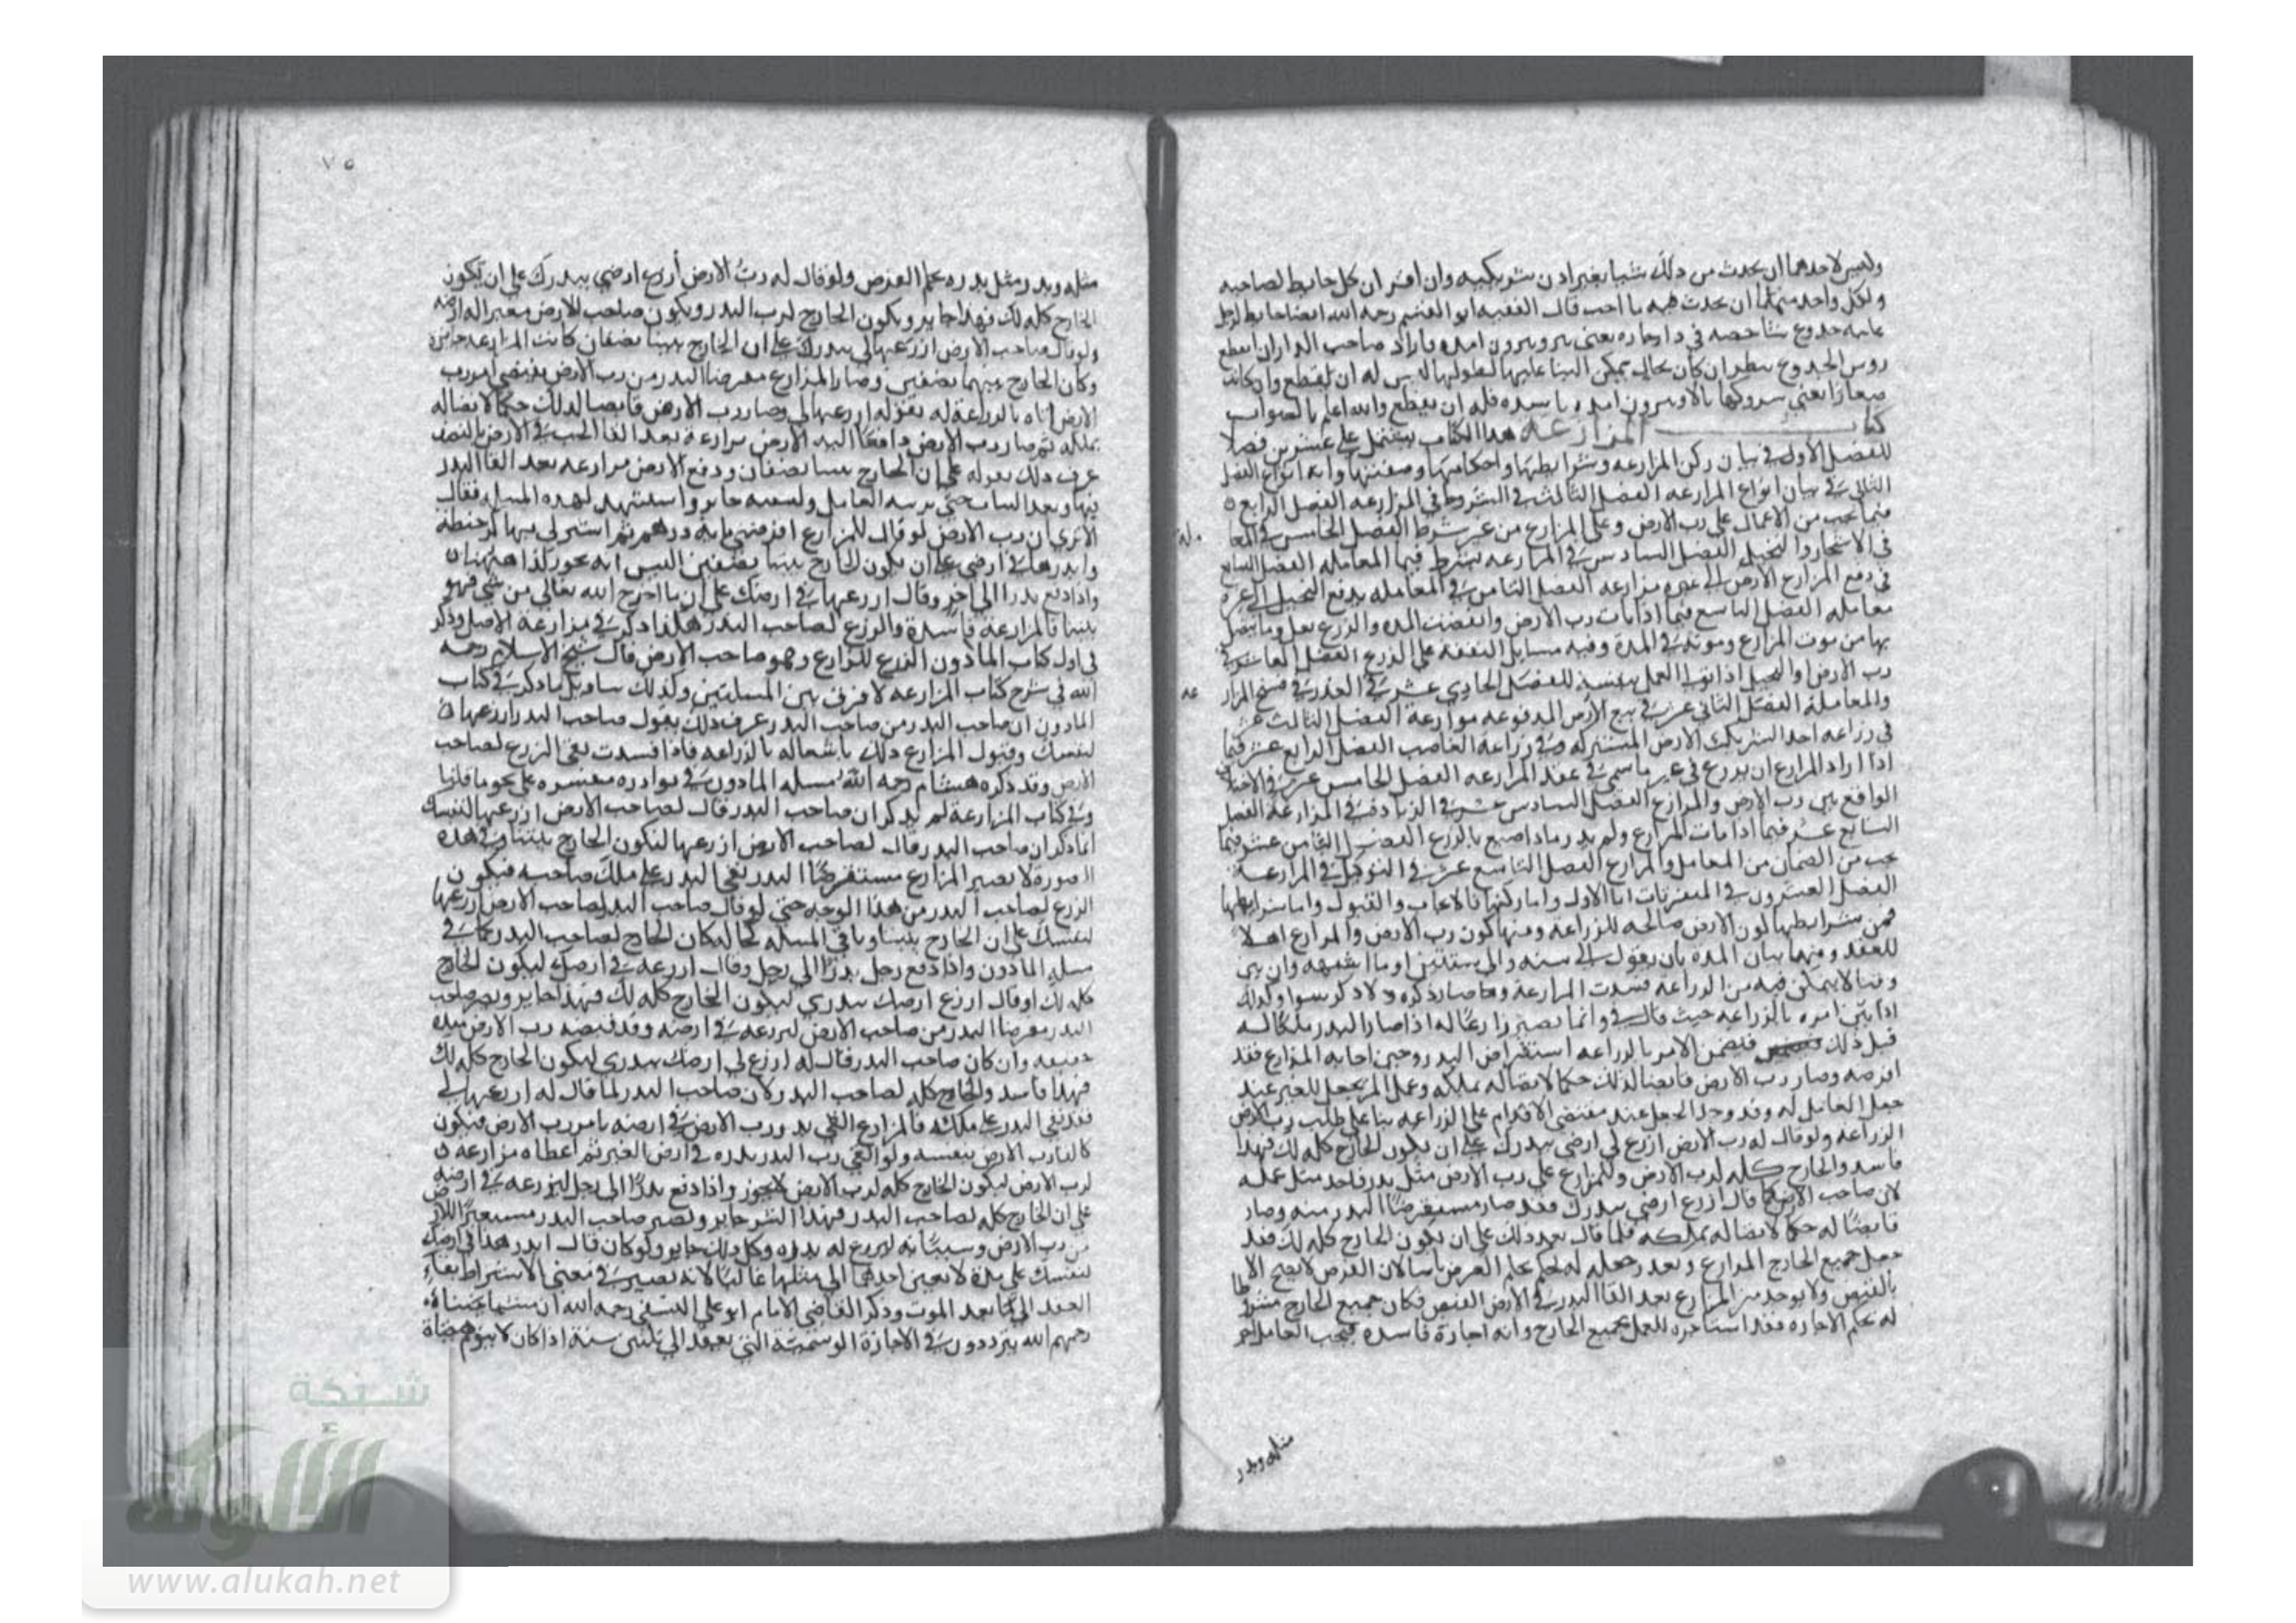 وليس لاحدهما ان يحدث من ذلك شيا بغير اذن شريكيه وان اقر ان كل حايط لصاحبه
ولكل واحد منهما ان يحدث فيه ما احب قال الفقيه ابو القسم رحمه الله ايضا حايط لرجل
عليه جذوع شاخصه في دار جاره فاراد صاحب الدار ان يقطع
روس الجذوع ينظر ان كان بحال يمكن البنا عليها لطولها ليس له ان يقطع وان كانت
صغارا فله ان يقطع والله اعلم بالصواب
كتاب المزارعة هذا الكتاب يشتمل على عشرين فصلا
الفصل الاول في بيان ركن المزارعه وشرايطها واحكامها وصفتها وانه انواع الفصل
الثاني في بيان انواع المزارعه الفصل الثالث في الشروط في المزارعه الفصل الرابع
فيما يجب من الاعمال على رب الارض وعلى المزارع من غير شرط الفصل الخامس في المعا
مله
في الاشجار والنخيل الفصل السادس في المزارعه يشترط فيها المعامله الفصل السابع
في دفع المزارع الارض الى غيره مزارعه الفصل الثامن في المعامله يدفع النخيل الى غيره
معامله الفصل التاسع فيما اذا مات رب الارض وانقضت المده والزرع بقل وما يتصل
بها من موت المزارع وموته في المدة وفيه مسايل النفقه على الزرع الفصل العاشر في
رب الارض او النخيل اذا تولى العمل بنفسه الفصل الحادي عشر في العذر في فسخ المزار
عه
والمعاملة الفصل الثاني عشر في بيع الارض المدفوعه مزارعة الفصل الثالث عشر
في زراعه احد الشريكين الارض المشتركه وفي زراعة الغاصب الفصل الرابع عشر فيما
اذا اراد المزارع ان يزرع في غير ما سمي في عقد المزارعه الفصل الخامس عشر في الاختلاف
الواقع بين رب الارض والمزارع الفصل السادس عشر في الزيادة في المزارعة الفصل
السابع عشر فيما اذا مات المزارع ولم يدر ماذا صنع بالزرع الفصل الثامن عشر فيما
يجب من الضمان من المعامل والمزارع الفصل التاسع عشر في التوكيل في المزارعة
الفصل العشرون في المتفرقات اما الاول واما ركنها فالايجاب والقبول واما شرايطها
فمن شرايطها كون الارض صالحه للزراعه ومنها كون رب الارض والمزارع اهلا
للعقد ومنها بيان المده بان يقول الى سنه والى سنتين او ما اشبهه وان بين
وقتا لا يتمكن فيه من الزراعه فسدت المزارعة وصار ذكره ولا ذكر سوا وكذلك
اذا بين امره بالزراعه حيث قال لي وانما يصير زارعا له اذا صار البدر ملكا له
قبل ذلك فيضمن الامر بالزراعه استقراض البدر وحين اجابه المزارع فقد
اقرضه وصار رب الارض قابضا لذلك حكما لاتصاله بملكه وعمل المرء يجعل للغير عند
جعل العامل له وقد وجد الجعل عند مقتضى الاقدام على الزراعه بنا على طلب رب الارض
الزراعه ولو قال له رب الارض ازرع لي ارضي ببدرك على ان يكون الخارج كله لك فهذا
فاسد والخارج كله لرب الارض وللمزارع على رب الارض مثل بدره واجر مثل عمله
لان صاحب الارض لما قال ازرع ارضي ببدرك فقد صار مستقرضا البدر منه وصار
قابضا له حكما لاتصاله بملكه فلما قال بعد ذلك على ان يكون الخارج كله لك فقد
جعل جميع الخارج للمزارع
بالقبض ولا يوجد من المزارع بعد القا البدر في الارض القبض فكان جميع الخارج مشروطا
له بحكم الاجاره فقد استاجره للعمل بجميع الخارج وانه اجارة فاسده فيجب للعامل اجر
مثله وبدر
٧٥
مثله وبدر مثل بدره بحكم القرض ولو قال له رب الارض ازرع ارضي ببدرك على ان يكون
الخارج كله لك فهذا جايز ويكون الخارج لرب البدر ويكون صاحب الارض معيرا له ارضه
ولو قال صاحب الارض ازرعها لي ببدرك على ان الخارج بيننا نصفان كانت المزارعه جايزة
وكان الخارج بينهما نصفين وصار المزارع مقرضا البدر من رب الارض بمقتضى امر رب
الارض اياه بالزراعة له بقوله ازرعها لي وصار رب الارض قابضا لذلك حكما لاتصاله
بملكه ثم صار رب الارض دافعا اليه الارض مزارعة بعد القا الحب في الارض بالنصف
عرف ذلك بقوله على ان الخارج بيننا نصفان ودفع الارض مزارعه بعد القا البدر
فيها وبعد النبات حتى يربيه العامل ويسقيه جايز واستشهد لهذه المسيله فقال
الا ترى ان رب الارض لو قال للمزارع اقرضني مايه درهم ثم اشتر لي بها كر حنطة
وابدرها في ارضي على ان يكون الخارج بيننا نصفين اليس انه يجوز كذا هاهنا
واذا دفع بدرا الى اخر وقال ازرعها في ارضك على ان ما اخرج الله تعالى من شي فهو
بيننا فالمزارعة فاسدة والزرع لصاحب البدر هكذا ذكر في مزارعة الاصل وذكر
في اول كتاب الماذون الزرع للمزارع وهو صاحب الارض قال شيخ الاسلام رحمه
الله في شرح كتاب المزارعه لا فرق بين المسلتين وكذلك تاويل ما ذكر في كتاب
الماذون ان صاحب البدر من صاحب البدر عرف ذلك بقول صاحب البدر ازرعها
لنفسك وقبول المزارع ذلك باشتغاله بالزراعه فاذا فسدت بقي الزرع لصاحب
الارض وقد ذكره هشام رحمه الله مسله الماذون في نوادره مفسره على نحو ما قلنا
وفي كتاب المزارعة لم يذكر ان صاحب البدر قال لصاحب الارض ازرعها لنفسك
انما ذكر ان صاحب البدر قال لصاحب الارض ازرعها ليكون الخارج بيننا وفي هذه
الصورة لا يصير المزارع مستقرضا البدر بقي البدر على ملك صاحبه فيكون
الزرع لصاحب البدر من هذا الوجه حتى لو قال صاحب البدر لصاحب الارض ازرعها
لنفسك على ان الخارج بيننا وباقي المسله بحالها كان الخارج لصاحب البدر كما في
مسله الماذون واذا دفع رجل بدرا الى رجل وقال ازرعه في ارضك ليكون الخارج
كله لك او قال ازرع ارضك ببدري ليكون الخارج كله لك فهذا جايز ويصير صاحب
البدر مقرضا البدر من صاحب الارض ليزرعه في ارضه وقد قبضه رب الارض بيده
حقيقه وان كان صاحب البدر قال له ازرع لي ارضك ببدري ليكون الخارج كله لك
فهذا فاسد والخارج كله لصاحب البدر لان صاحب البدر لما قال له ازرعها لي
فقد بقي البدر على ملكه فالمزارع القى بدر رب الارض في ارضه بامر رب الارض فيكون
كالقا رب الارض بنفسه ولو القى رب البدر بدره في ارض الغير ثم اعطاه مزارعه
لرب الارض ليكون الخارج كله لرب الارض لا يجوز واذا دفع بدرا الى رجل ليزرعه في ارضه
على ان الخارج كله لصاحب البدر فهذا الشرط جايز ويصير صاحب البدر مستعيرا للارض
من رب الارض ومستعينا به ليزرع له بدره وكل ذلك جايز ولو كان قال ابدر هذا في ارضك
لنفسك على مدة لا يعيش احدهما الى مثلها غالبا لانه يصير في معنى الاشتراط بقاء
العقد الى ما بعد الموت وذكر القاضي الامام ابو علي النسفي رحمه الله ان مشايخنا
رحمهم الله يترددون في الاجارة الرسمية التي يعقد الى ثلثين سنة اذا كان لا يتوهم حياة
شبكة
الألوكة
www.alukah.net